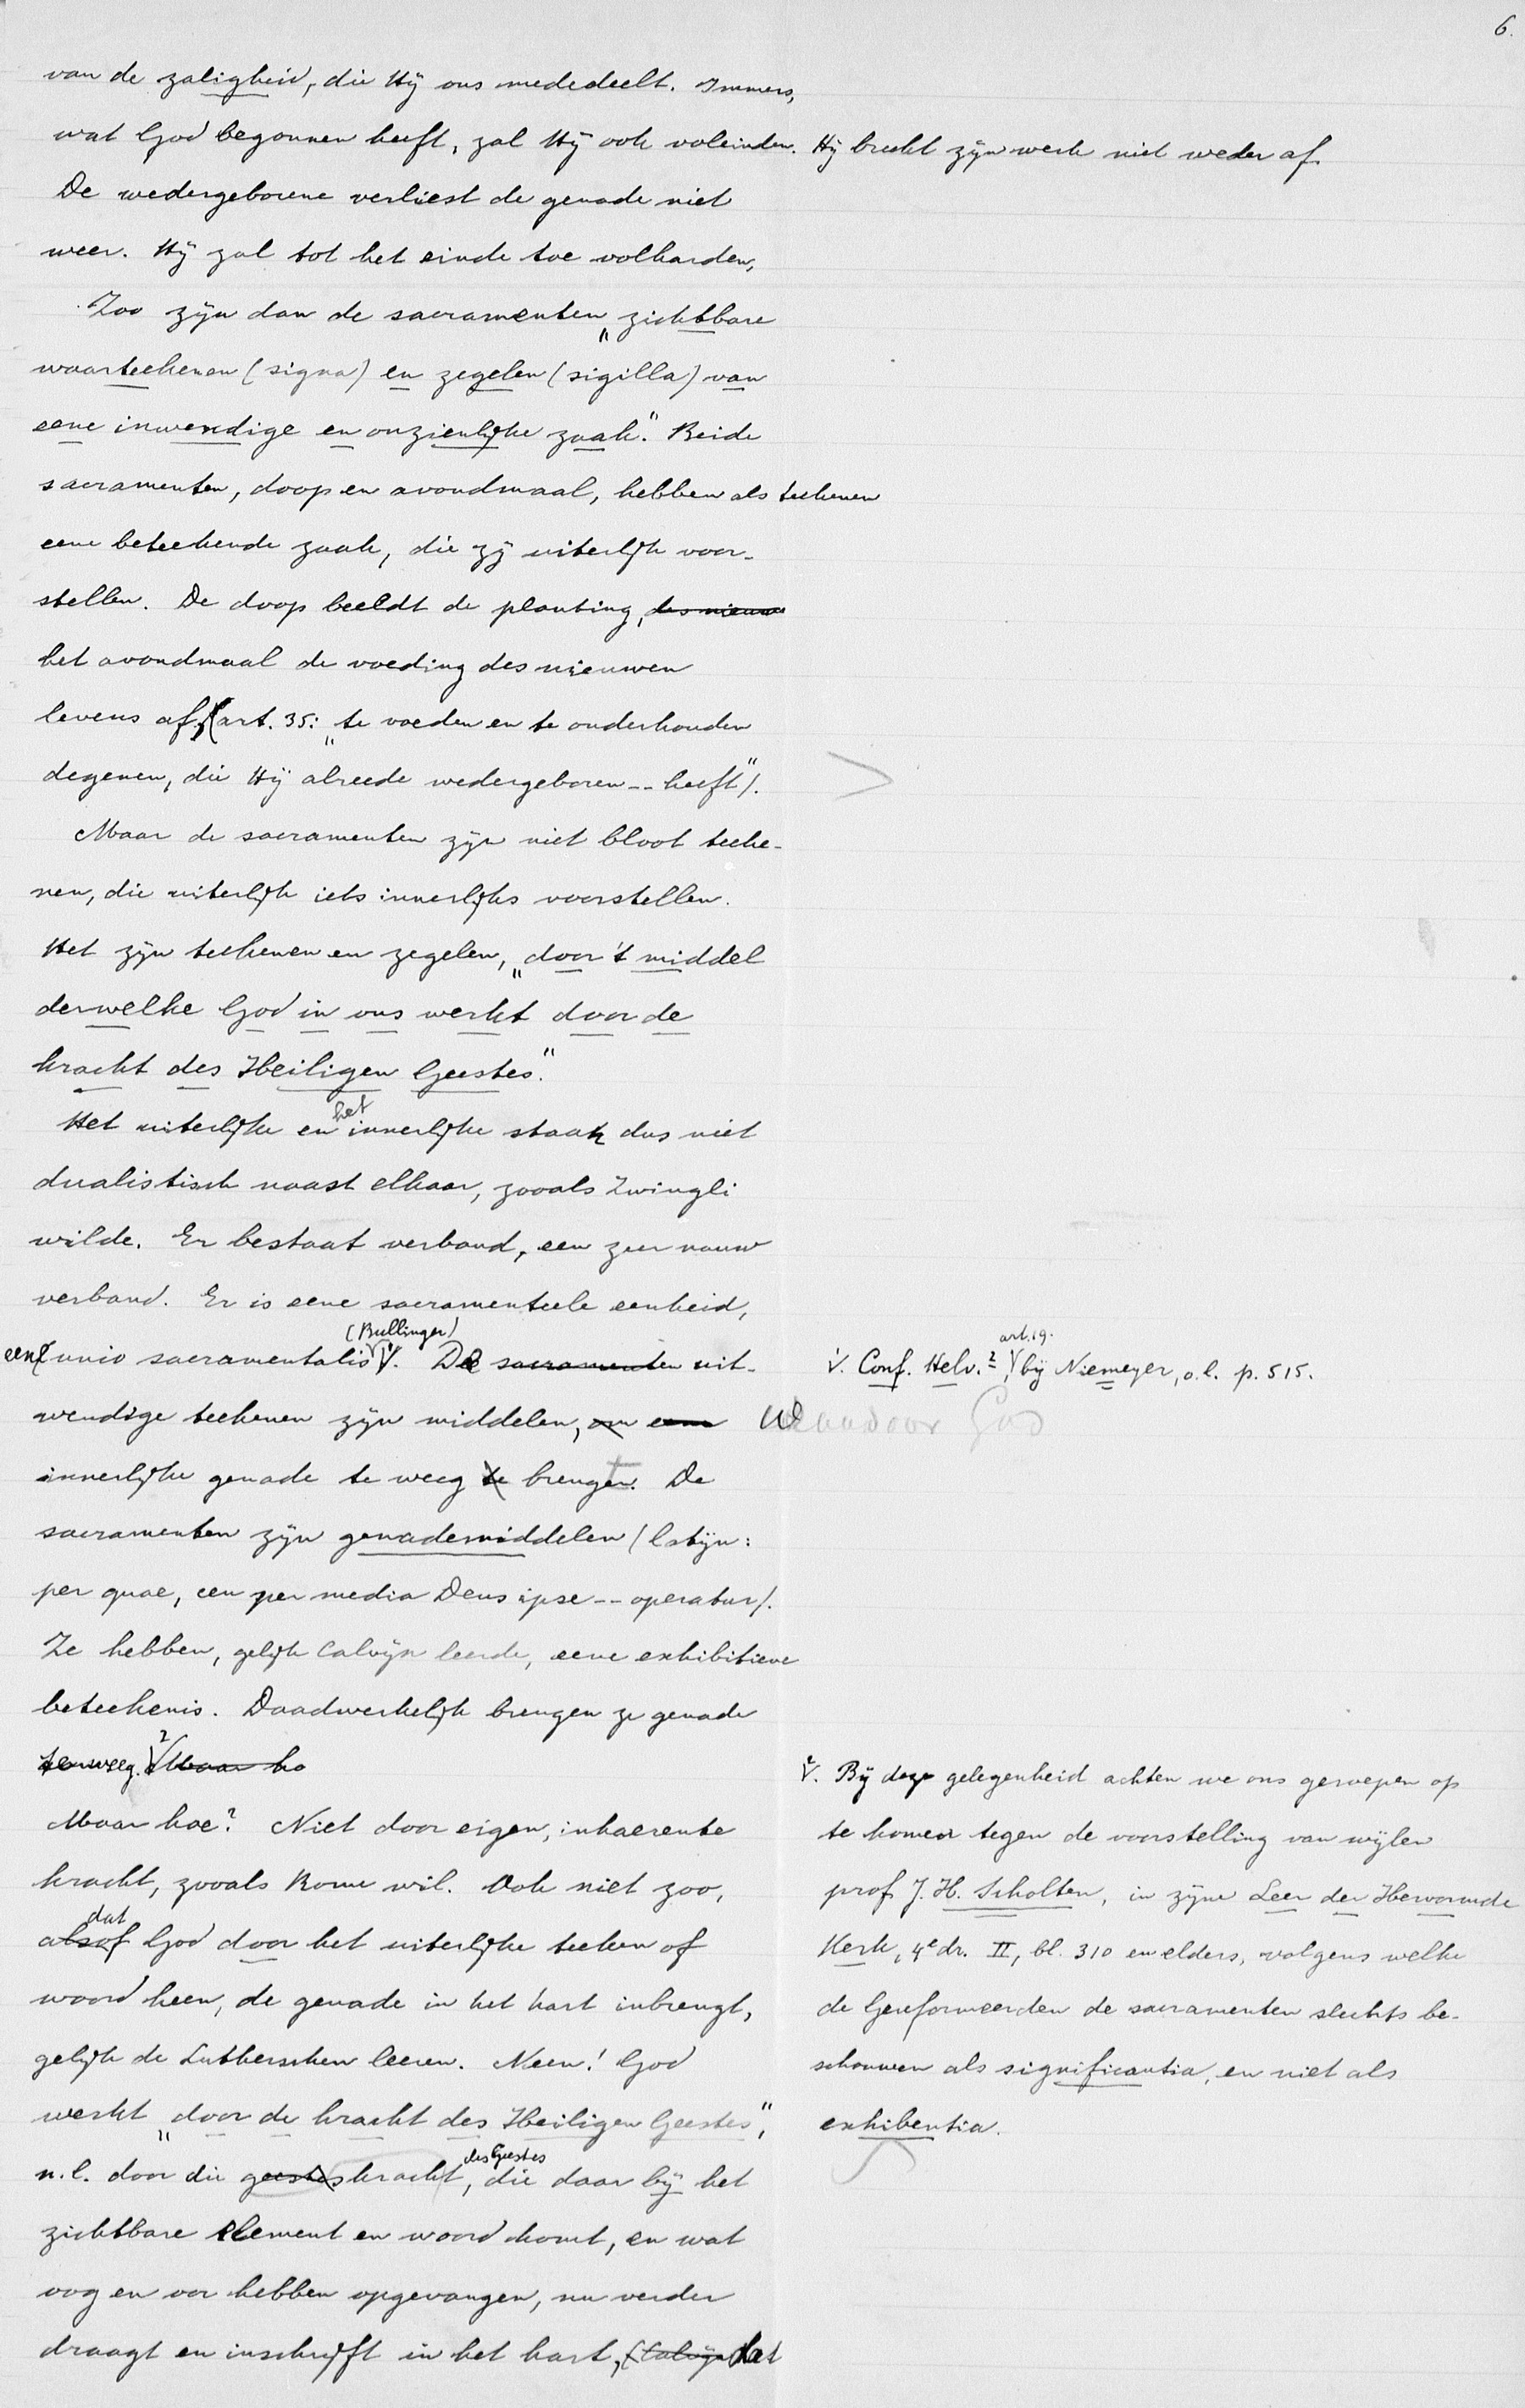 6.
van de zaligheid, die Hij ons mededeelt. Immers,
wat God begonnen heeft, zal Hij ook voleinden. Hij breekt zijn werk niet weder af.
De wedergeborene verliest de genade niet
weer. Hij zal tot het einde toe volharden.
Zoo zijn dan de sacramenten „zichtbare
waarteekenen (signa) en zegelen (sigilla) van
eene inwendige en onzienlijke zaak." Beide
sacramenten, doop en avondmaal, hebben als teekenen
eene beteekende zaak, die zij uiterlijk voor-
stellen. De doop beeldt de planting, des nieuwe
het avondmaal de voeding des nieuwen
levens af, (art. 35: „te voeden en te onderhouden
degenen, die Hij alreede wedergeboren -- heeft").
Maar de sacramenten zijn niet bloot teeke-
nen, die uiterlijk iets innerlijks voorstellen.
Het zijn teekenen en zegelen, „door 't middel
derwelke God in ons werkt door de
kracht des Heiligen Geestes."
Het uiterlijke en het innerlijke staan dus niet
dualistisch naast elkaar, zooals Zwingli
wilde. Er bestaat verband, een zeer nauw
verband. Er is eene sacramenteele eenheid,
een unio sacramentalis (Bullinger) 1. De sacramenten uit-
wendige teekenen zijn middelen, om eene waardoor God
innerlijke genade te weeg te brengt. De
sacramenten zijn genademiddelen (latijn:
per quae, ceu per media Deus ipse -- operatur).
Ze hebben, gelijk Calvijn leerde, eene exhibitieve
beteekenis. Daadwerkelijk brengen ze genade
teweeg. 2 Maar ho
Maar hoe? Niet door eigen, inhaerente
kracht, zooals Rome wil. Ook niet zoo,
alsof dat God door het uiterlijke teeken of
woord heen, de genade in het hart inbrengt,
gelijk de Lutherschen leeren. Neen! God
werkt „door de kracht des Heiligen Geestes",
n.l. door die geestes kracht des Geestes, die daar bij het
zichtbare element en woord komt, en wat
oog en oor hebben opgevangen, nu verder
draagt en inschrijft in het hart, (Calvijn dat
1. Conf. Helv. 2 art. 19. bij Niemeyer, o.l. p. 515.
2. Bij deze gelegenheid achten we ons geroepen op
te komen tegen de voorstelling van wijlen
prof. J. H. Scholten, in zijne Leer der Hervormde
Kerk, 4e dr. II, bl. 310 en elders, volgens welke
de Gereformeerden de sacramenten slechts be-
schouwen als significantia, en niet als
exhibentia.